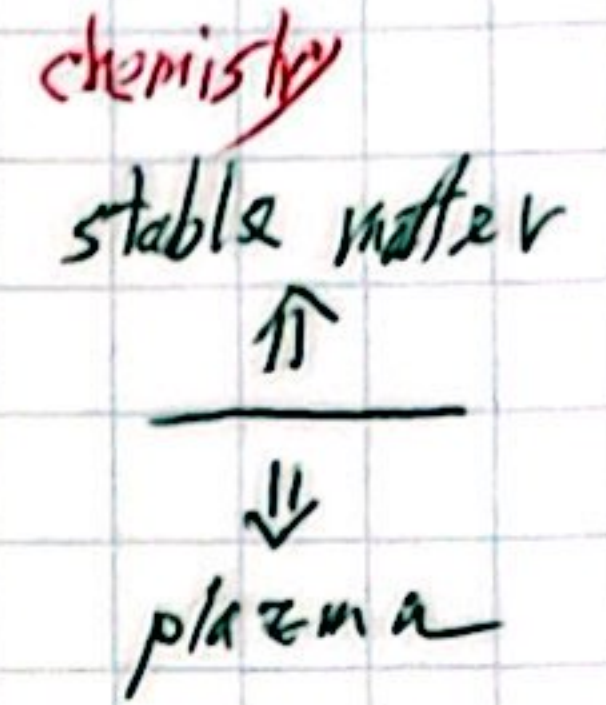 chemistry
stable matter
⇑
⇓
plazma